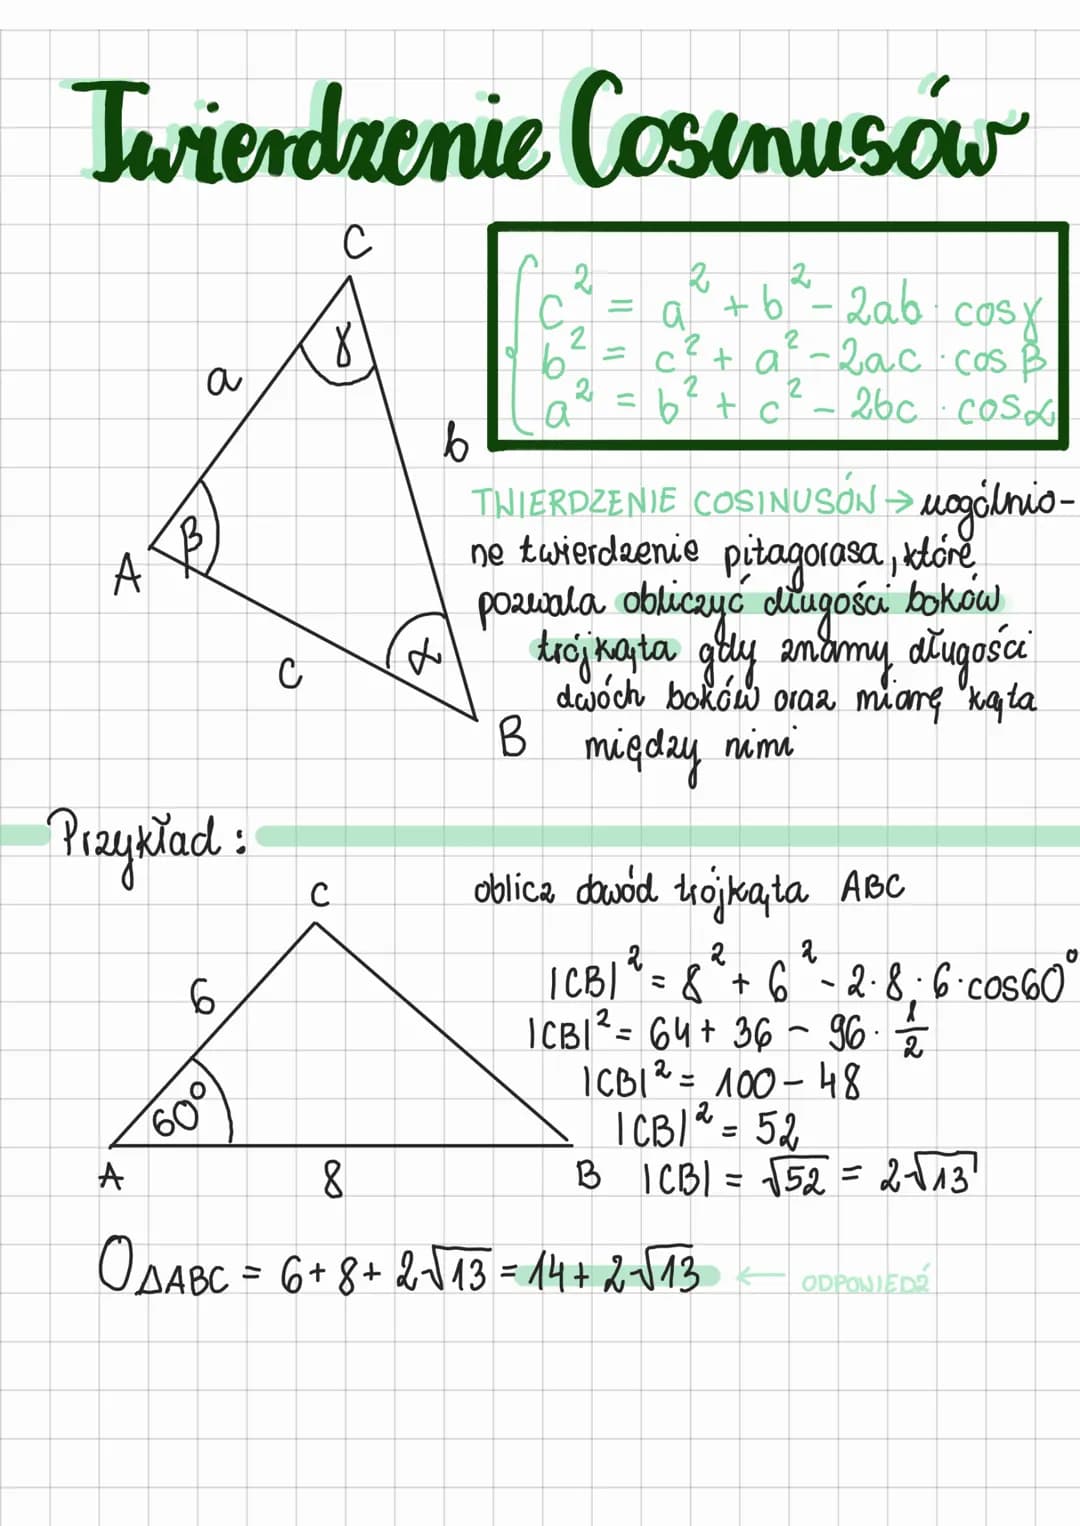 Twierdzenie Cosinusów
C
γ
a
b
β
A
c
α
B
c² = a² + b² - 2ab · cosγ
b² = c² + a² - 2ac · cos β
a² = b² + c² - 2bc · cosα
TWIERDZENIE COSINUSÓW → uogólnio-
ne twierdzenie pitagorasa, które
pozwala obliczyć długości boków
trójkąta gdy znamy długości
dwóch boków oraz miarę kąta
między nimi
Przykład:
C
6
60°
A
8
B
oblicz obwód trójkąta ABC
|CB|² = 8² + 6² - 2·8·6·cos60°
|CB|² = 64 + 36 - 96 · 1/2
|CB|² = 100 - 48
|CB|² = 52
|CB| = √52 = 2√13
O△ABC = 6 + 8 + 2√13 = 14 + 2√13 ← ODPOWIEDŹ